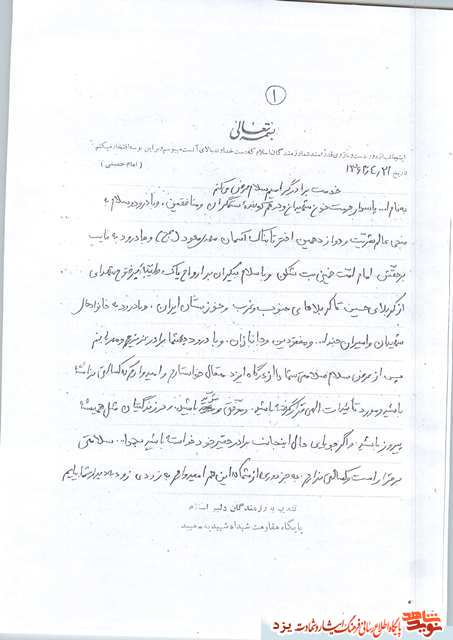 ۱
بسمه تعالی
اینجانب از دور دست و بازوی قدرتمند شما رزمندگان اسلام که دست خداوند بالای آن است میبوسم و بر این بوسه افتخار میکنم
تاریخ ۱۳۶۲/۴/۲۱ (امام خمینی)
خدمت برادر گرامیم سلام عرض میکنم
بنام الله پاسدار حرمت خون شهیدان و درهم کوبنده ستمگران و منافقین، و با درود و سلام به
منجی عالم بشریت و دوازدهمین اختر تابناک آسمان مهدی موعود (عج) و با درود به نایب
بر حقش امام امت خمینی بت شکن و با سلام بیکران بر ارواح پاک و طیبه شهدای
از کربلای حسین تا کربلاهای جنوب و غرب و خوزستان ایران، و با درود به خانواده‌های
شهیدان و اسیران و مفقودین و جانبازان، و با درود به شما برادر عزیزم
پس از عرض سلام سلامتی شما را از درگاه ایزد متعال خواستارم و امیدوارم که کسالتی نداشته
باشید و مورد تأییدات الهی قرار گرفته باشید، و موفق و باشید و در زندگیتان مثل همیشه
پیروز باشید و اگر جویای حال اینجانب برادر حقیر خود خواسته باشید سلامتی
برقرار است و کسالتی ندارم به جز دوری از شما که این هم امیدوارم به زودی زود دیدار شما یابیم
تقدیم به رزمندگان دلیر اسلام
پایگاه مقاومت شهداء شهیدیه - میبد
نوید شاهد
پایگاه اطلاع رسانی فرهنگ ایثار و شهادت یزد